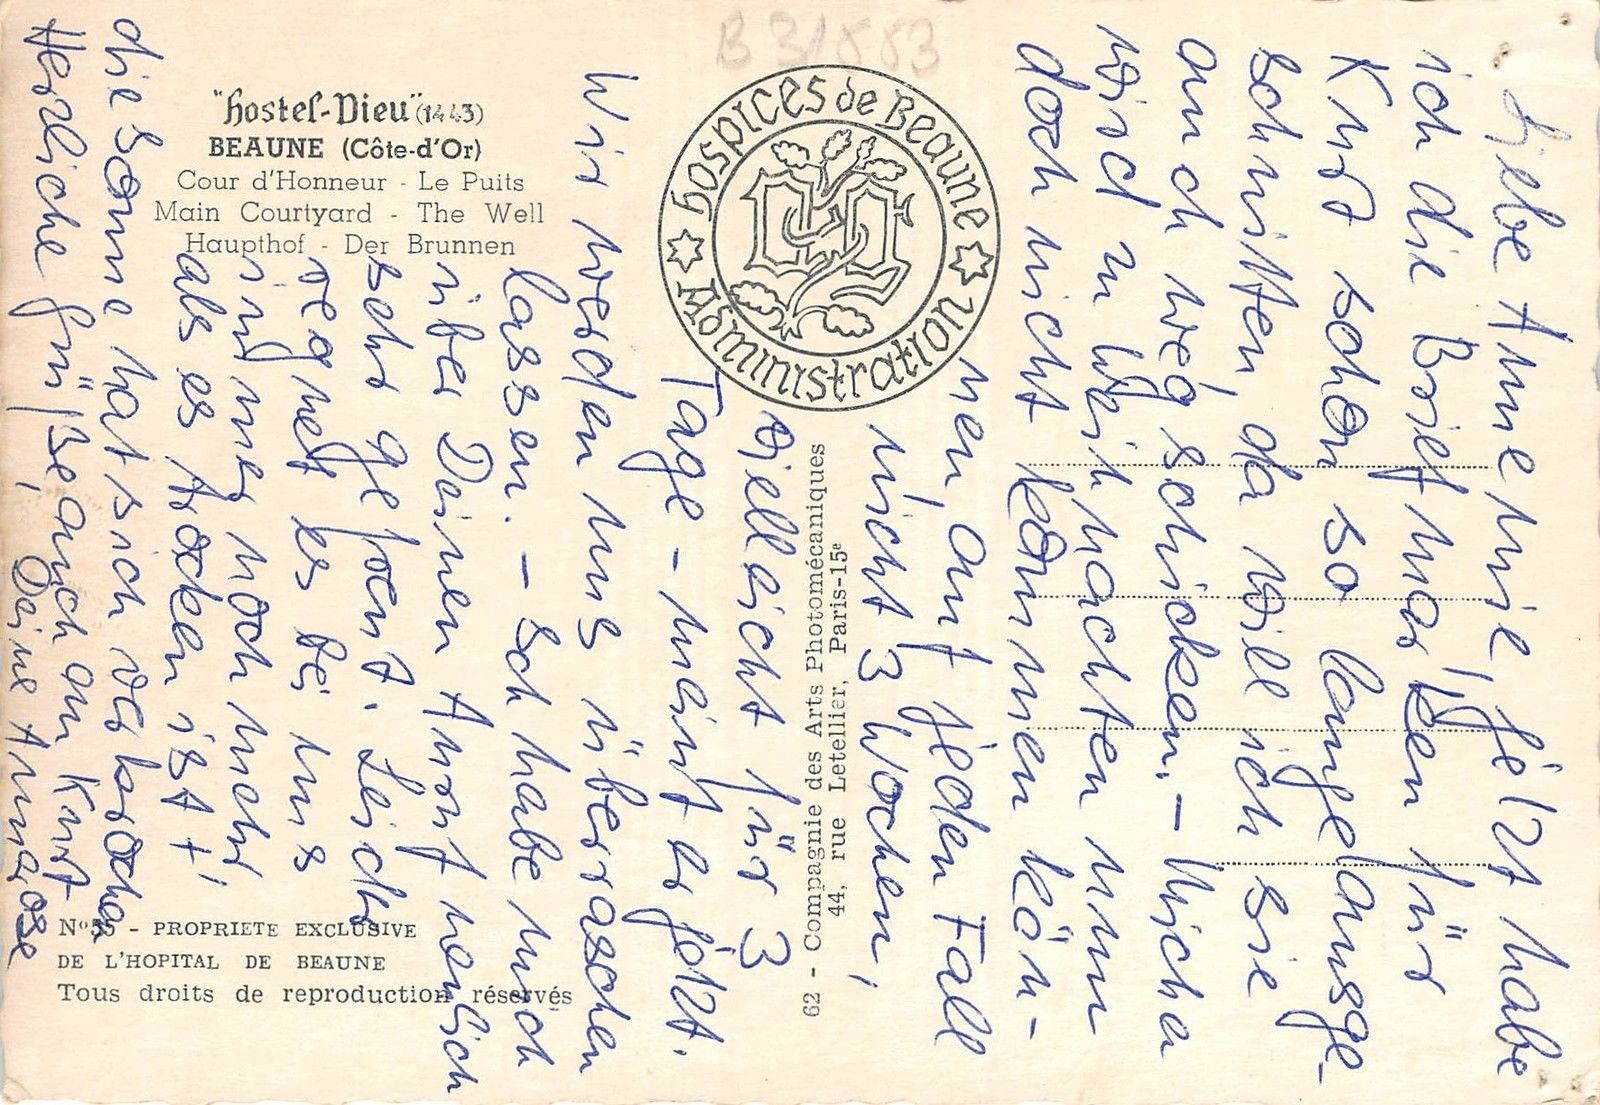 B 31553
"Hostel-Dieu" (1443)
BEAUNE (Côte-d'Or)
Cour d'Honneur - Le Puits
Main Courtyard - The Well
Haupthof - Der Brunnen
Hospices de Beaune
Administration
62 - Compagnie des Arts Photomécaniques
44, rue Letellier, Paris-15e
N° 55 - PROPRIETE EXCLUSIVE
DE L'HOPITAL DE BEAUNE
Tous droits de reproduction réservés
Liebe Annemie, jetzt habe
ich die Briefmarken für
Kurt schon so lange ausge-
schnitten, da will ich sie
auch wegschicken. - Micha
wird zu Weihnachten nun
doch nicht kommen kön-
nen, auf jeden Fall
nicht 3 Wochen,
vielleicht für 3
Tage - meint er jetzt.
Wir werden uns überraschen
lassen. - Ich habe mich
über Deinen Anruf neulich
sehr gefreut. Leider
regnet es bei uns
immer noch mehr
als es trocken ist +
die Sonne hat sich verkrochen
Herzliche Grüße, auch an Kurt
Deine Annerose